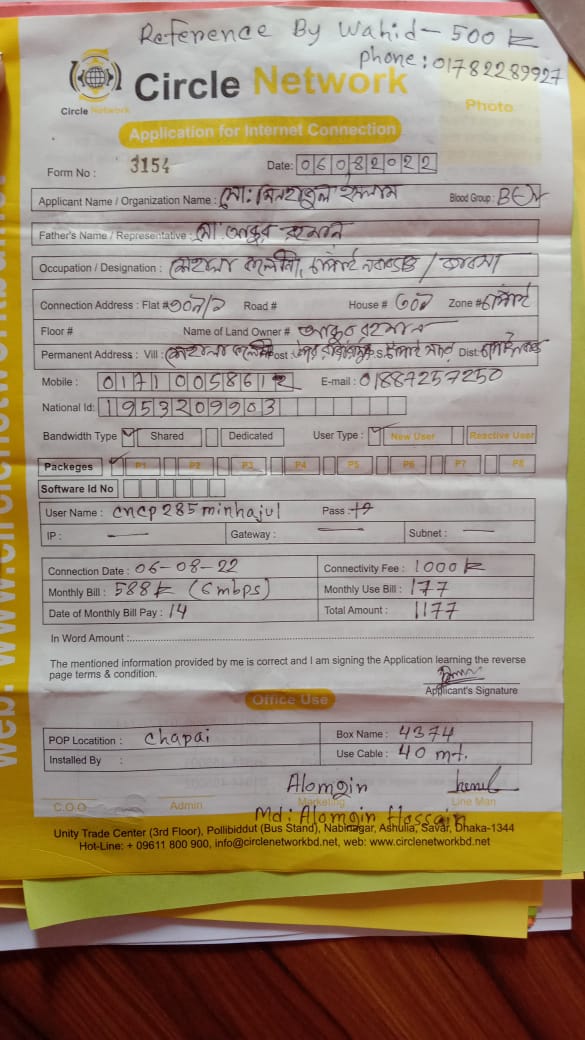 Reference By Wahid - 500 tk
phone: 01782289927
Circle Network
Circle Network
Photo
Application for Internet Connection
Form No : 3154 Date: 06082022
Applicant Name / Organization Name : মো: মিনহাজুল ইসলাম Blood Group :
Father's Name / Representative : মো:
Occupation / Designation :
Connection Address : Flat # Road # House # Zone #
Floor # Name of Land Owner #
Permanent Address : Vill : Post : P.S. Dist:
Mobile : 01710058612 E-mail : 01887257250
National Id: 1953209903
Bandwidth Type Shared Dedicated User Type : New User Reactive User
Packeges P1 P2 P3 P4 P5 P6 P7 P8
Software Id No
User Name : cncp285minhajul Pass :
IP : — Gateway : — Subnet : —
Connection Date : 06-08-22 Connectivity Fee : 1000 tk
Monthly Bill : 588 tk (6 mbps) Monthly Use Bill : 177
Date of Monthly Bill Pay : 14 Total Amount : 1177
In Word Amount :
The mentioned information provided by me is correct and I am signing the Application learning the reverse
page terms & condition.
Applicant's Signature
Office Use
POP Locatition : Chapai Box Name : 4374
Installed By : Use Cable : 40 mt.
Alomgin
C.O.O Admin Marketing Line Man
Md: Alomgin Hossain
Unity Trade Center (3rd Floor), Pollibiddut (Bus Stand), Nabinagar, Ashulia, Savar, Dhaka-1344
Hot-Line: + 09611 800 900, info@circlenetworkbd.net, web: www.circlenetworkbd.net